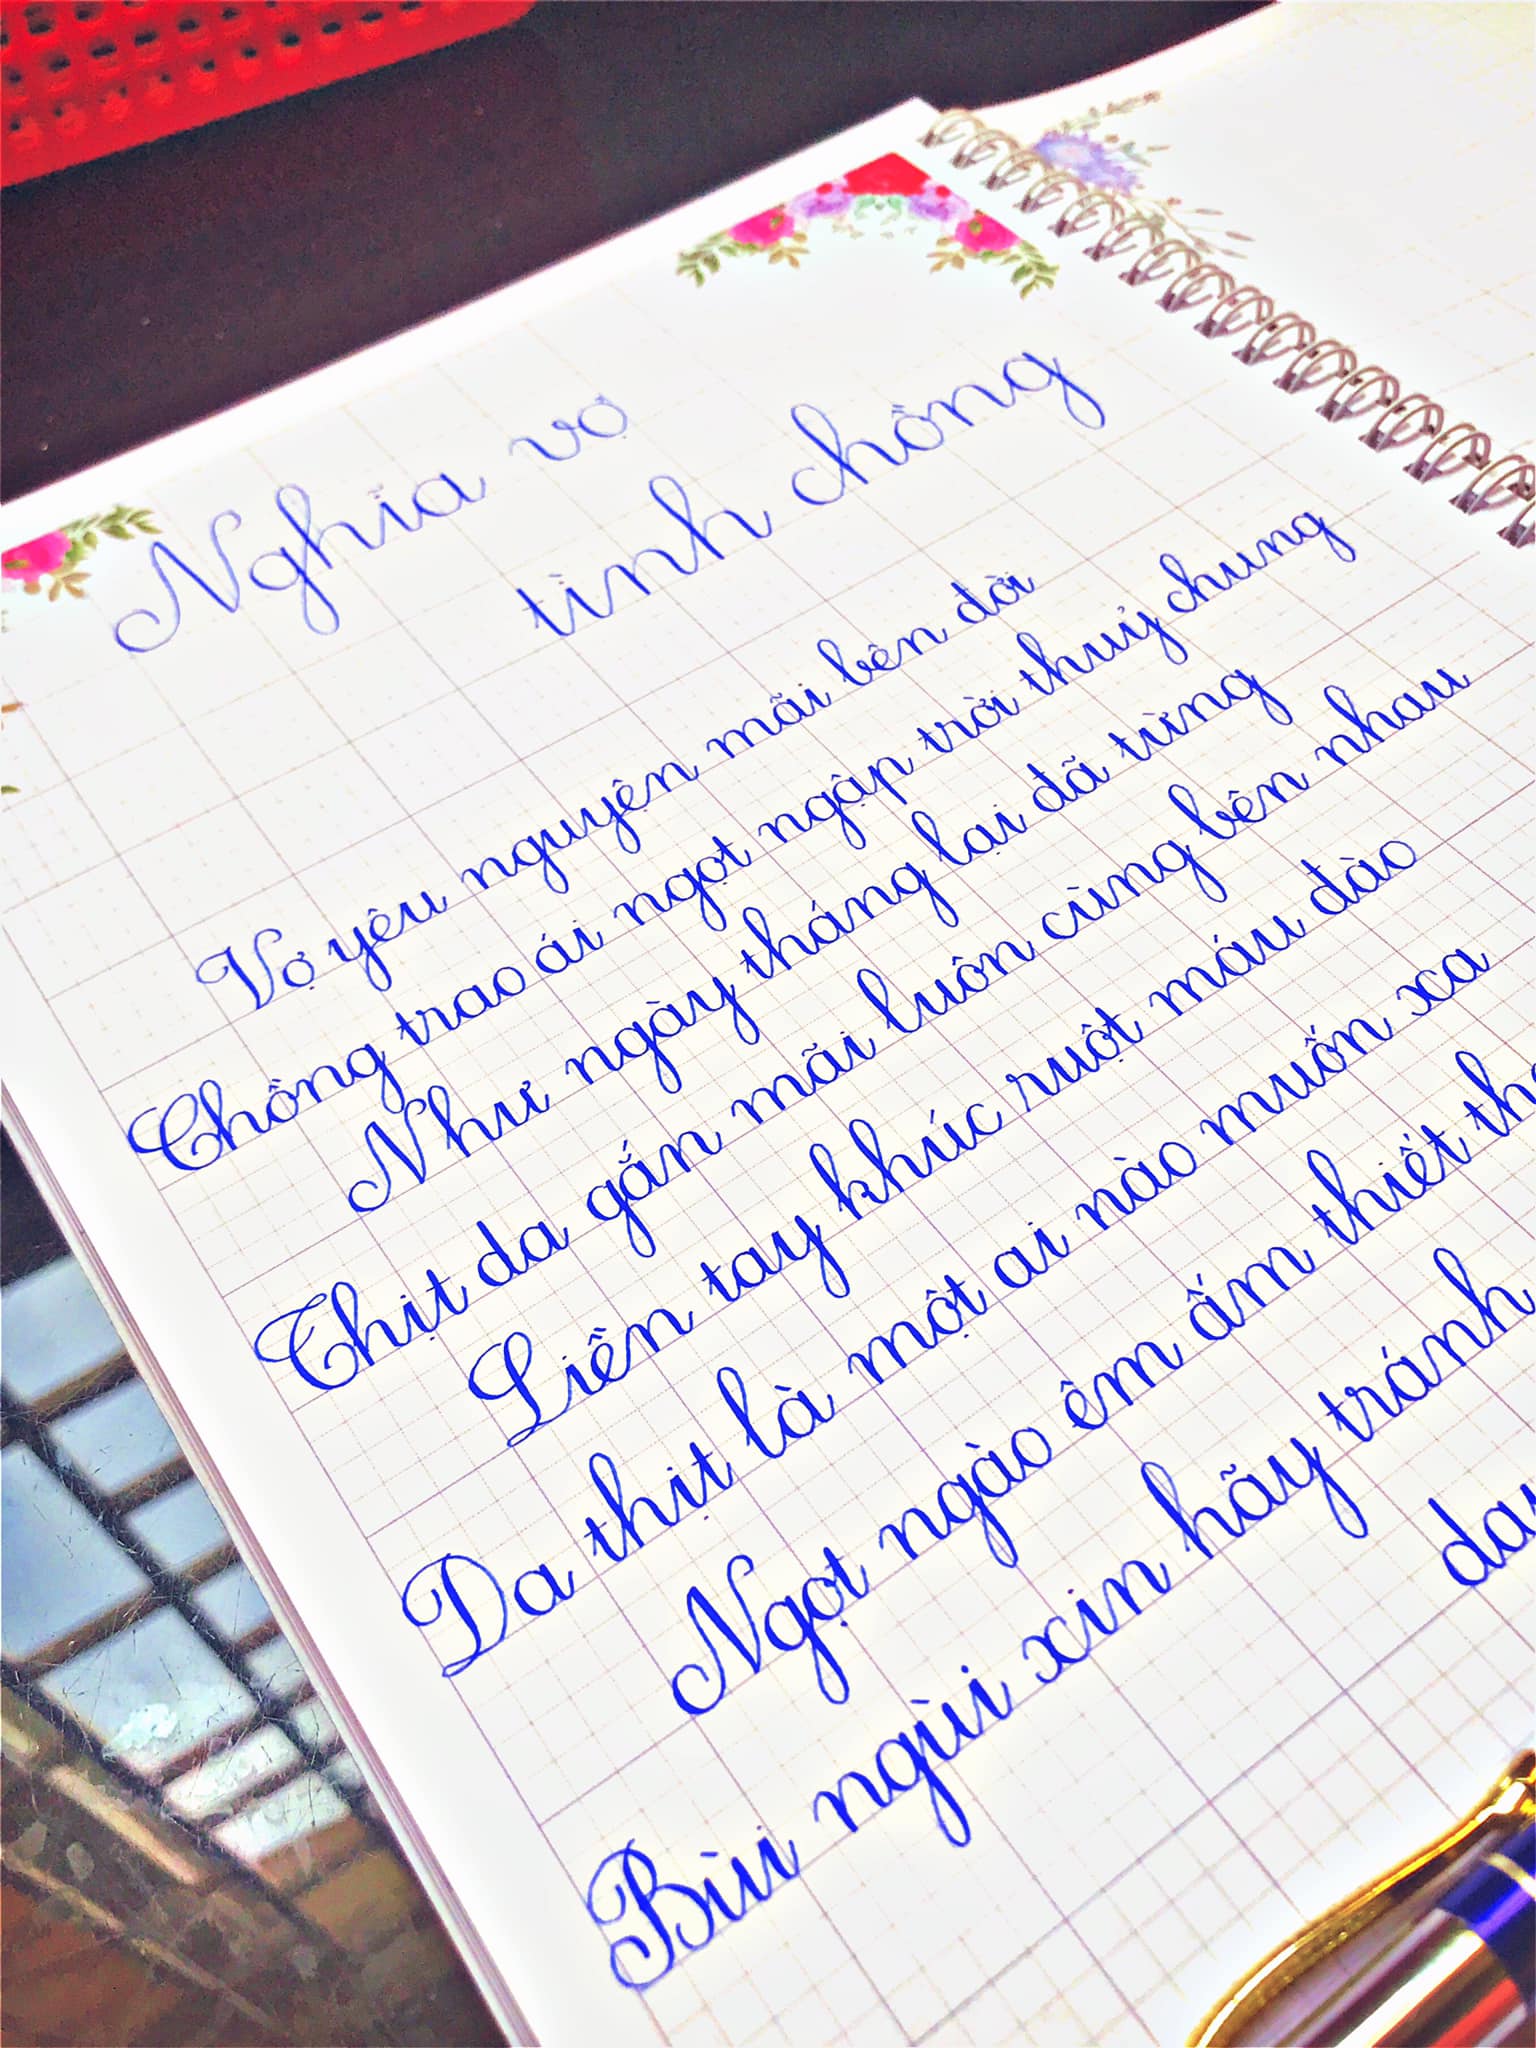 Nghĩa vợ
tình chồng
Vợ yêu nguyện mãi bên đời
Chồng trao ái ngọt ngập trời thuỷ chung
Như ngày tháng lại đã từng
Thịt da gắn mãi luôn cùng bên nhau
Liền tay khúc ruột máu đào
Da thịt là một ai nào muốn xa
Ngọt ngào êm ấm thiết
Bùi ngùi xin hãy tránh